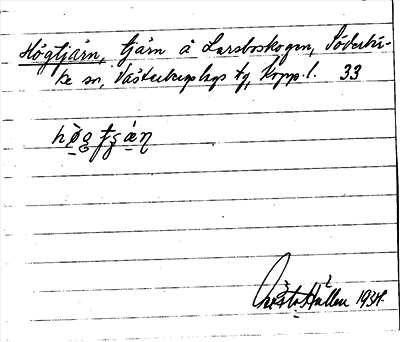 Högtjärn, tjärn å Larsboskogen, Söderbär-
ke sn, Västerbergslags tg, Kopp. l. 33
Gösta Hallen 1934.